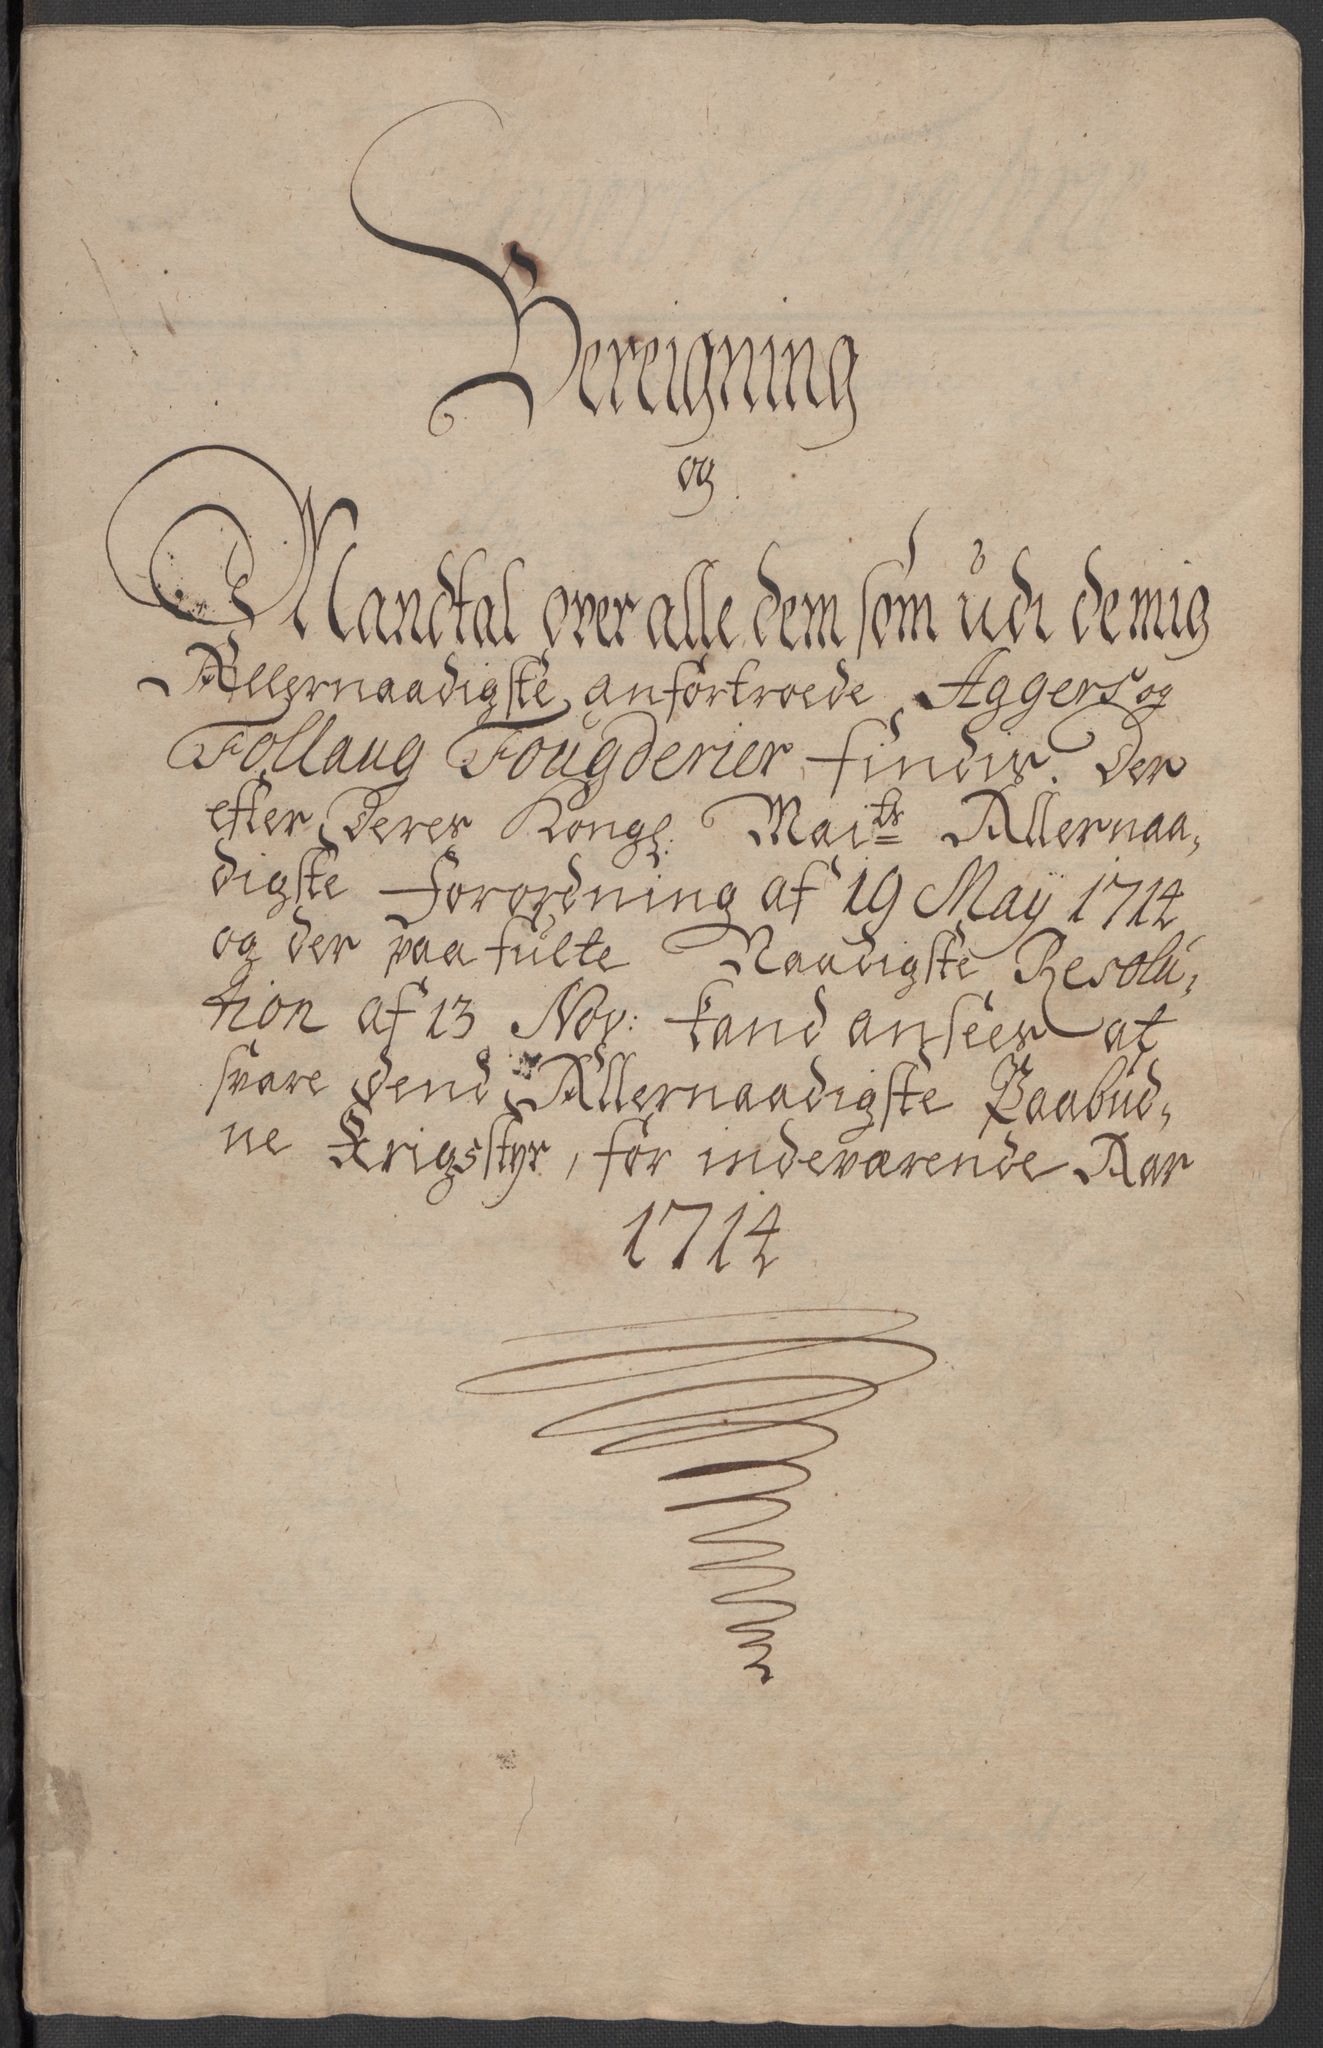 Bereigning
og
Mandtal over alle dem som udi de mig
Allernaadigste anfortroede Aggers og
Follaug Fougderier findis. Der
efter Deres Kongl: Maits Allernaa,
digste Forordning af 19 Maÿ 1714
og der paa fulte Naadigste Resolu,
tion af 13 Nov: kand ansees at
svare dend Allernaadigste Paabud,
ne Krigsstyr, for indeværende Aar
1714